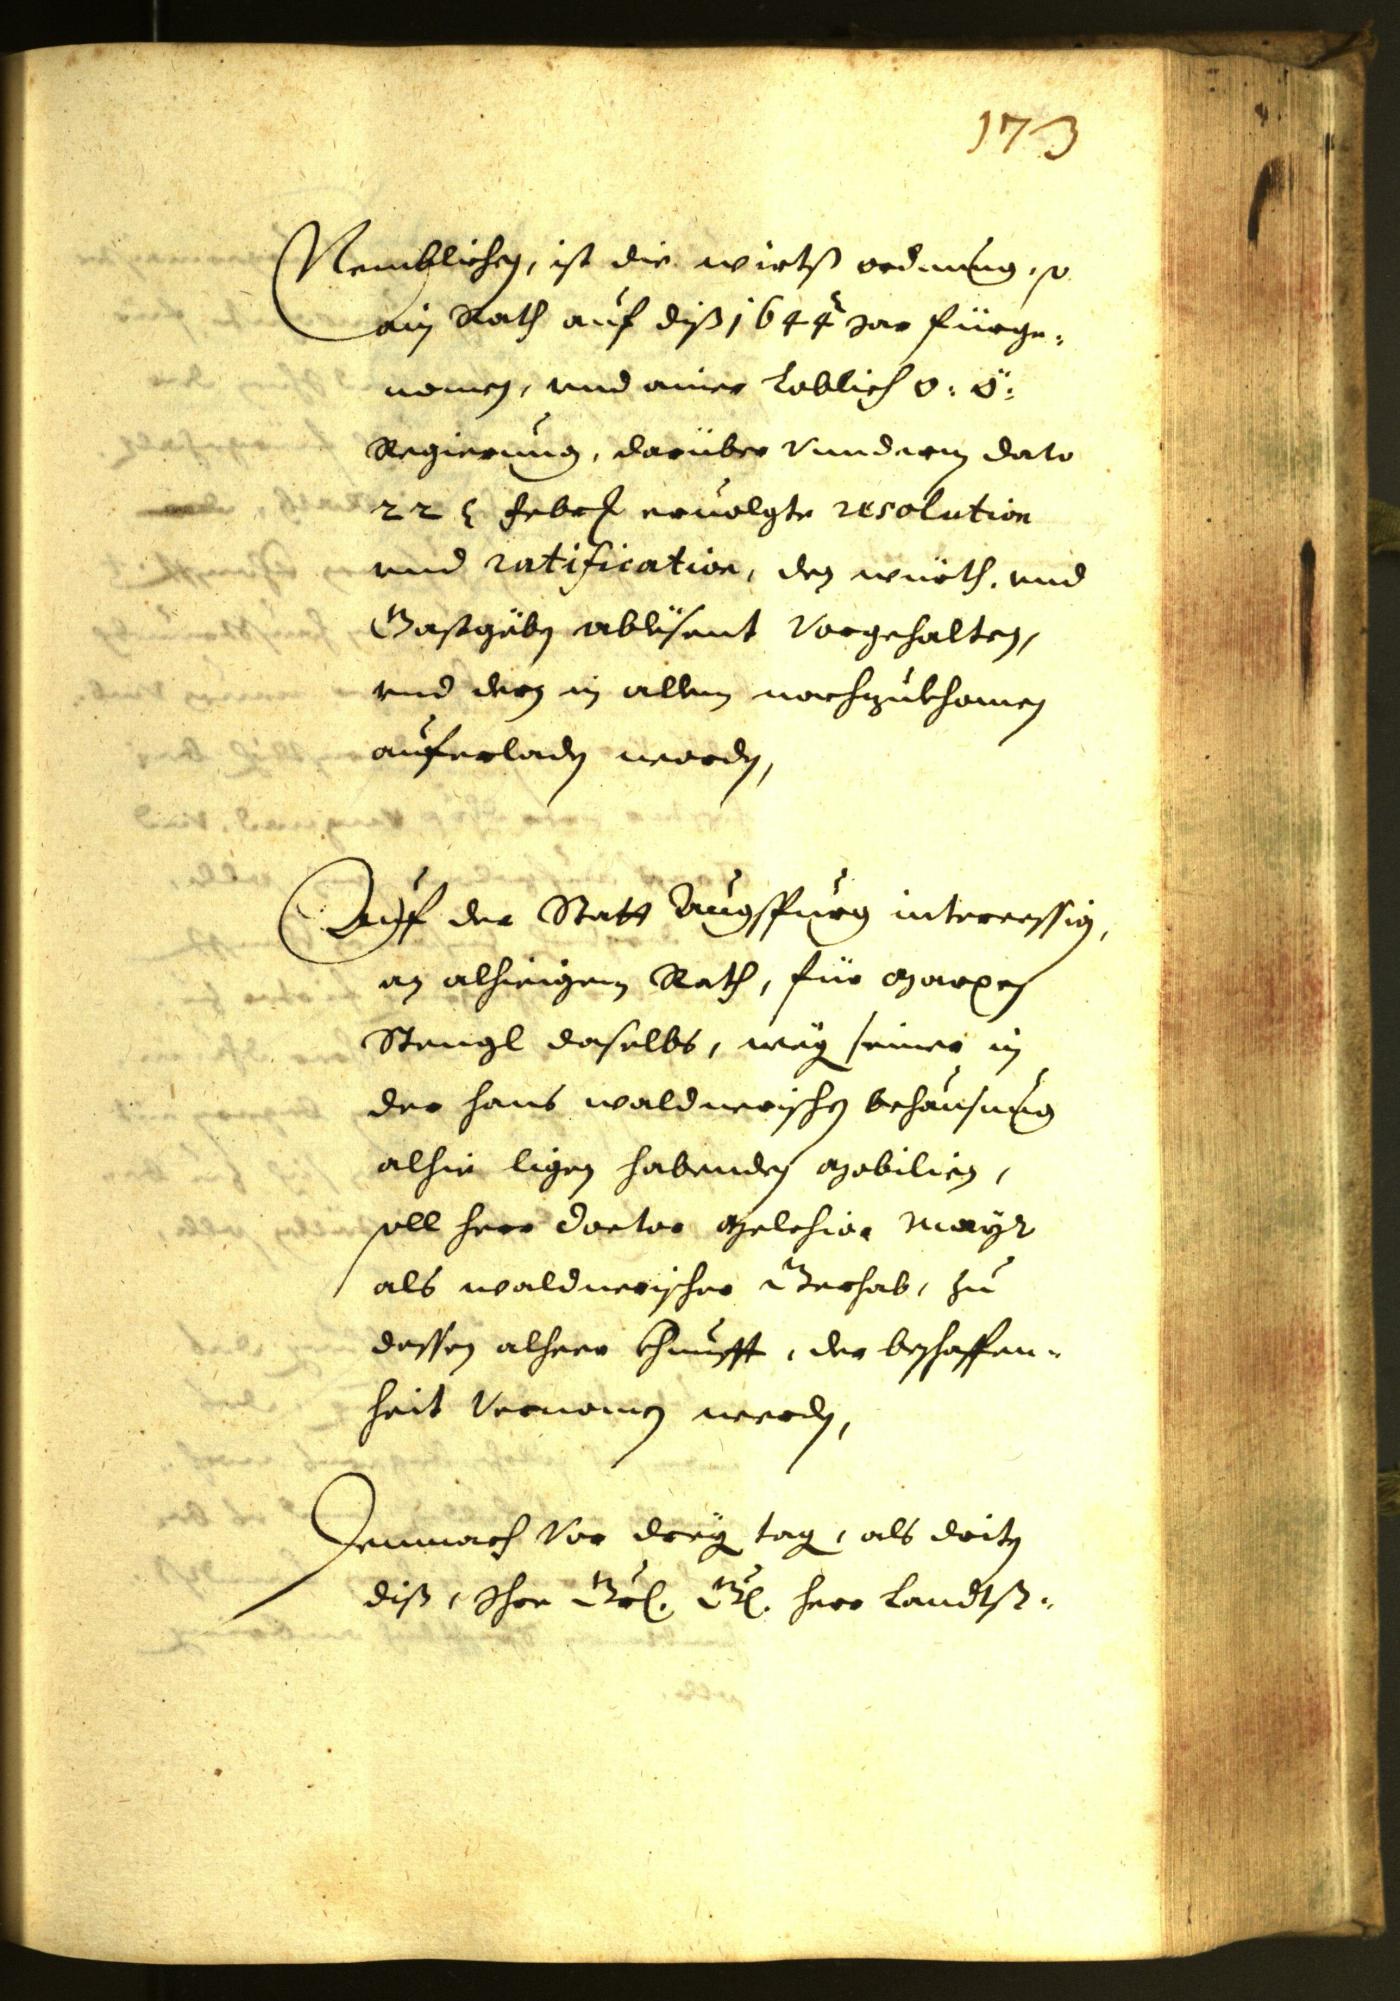 173
Nemblichen, ist die wirtß ordnung, so
ain Rath auf diß 1644 Jar fürge-
nomen, und ainer Loblich O: Ö:
Regierung, darüber vnnderm dato
22 Febr. ervolgte resolution
und ratification, den würth, und
Gastgäben ablesent vorgehalten,
und deren in allem nachzukhomen
auferladen worden,
Auf der Statt Augspurg intercession,
an alhieigem Rath, für Marxen
Stengl daselbs, weg seiner in
der Hans Waldnerischen behausung
alhie ligen habenden Mobilien,
soll Herr Doctor Melchior Mayr
als Waldnerischer Gerhab, zu
dessen alheer khunfft, der beschaffen-
heit vernomen werden,
Demnach vor drey tag, als driten
diß, Ihr Gn. Herr Landtß-